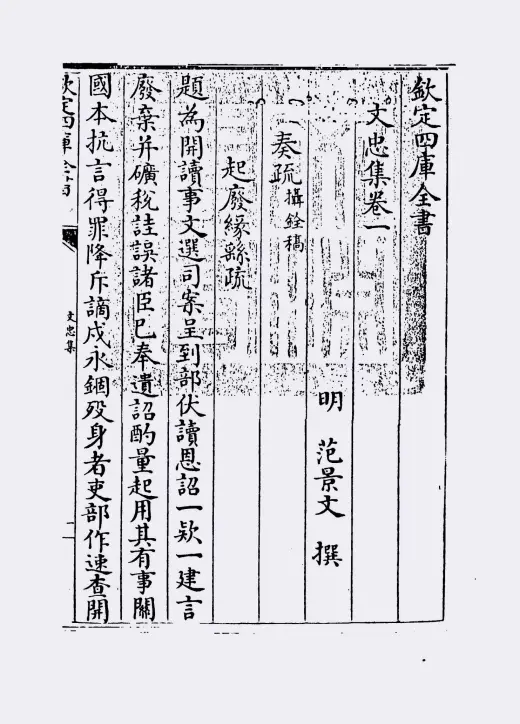 欽定四庫全書
文忠集卷一
明 范景文 撰
奏疏攝銓稿
起廢緣繇疏
題為開讀事文選司案呈到部伏讀恩詔一欵一建言
廢棄并礦稅詿誤諸臣已奉遺詔酌量起用其有事關
國本抗言得罪降斥謫戍永錮殁身者吏部作速查開
欽定四庫全書
文忠集